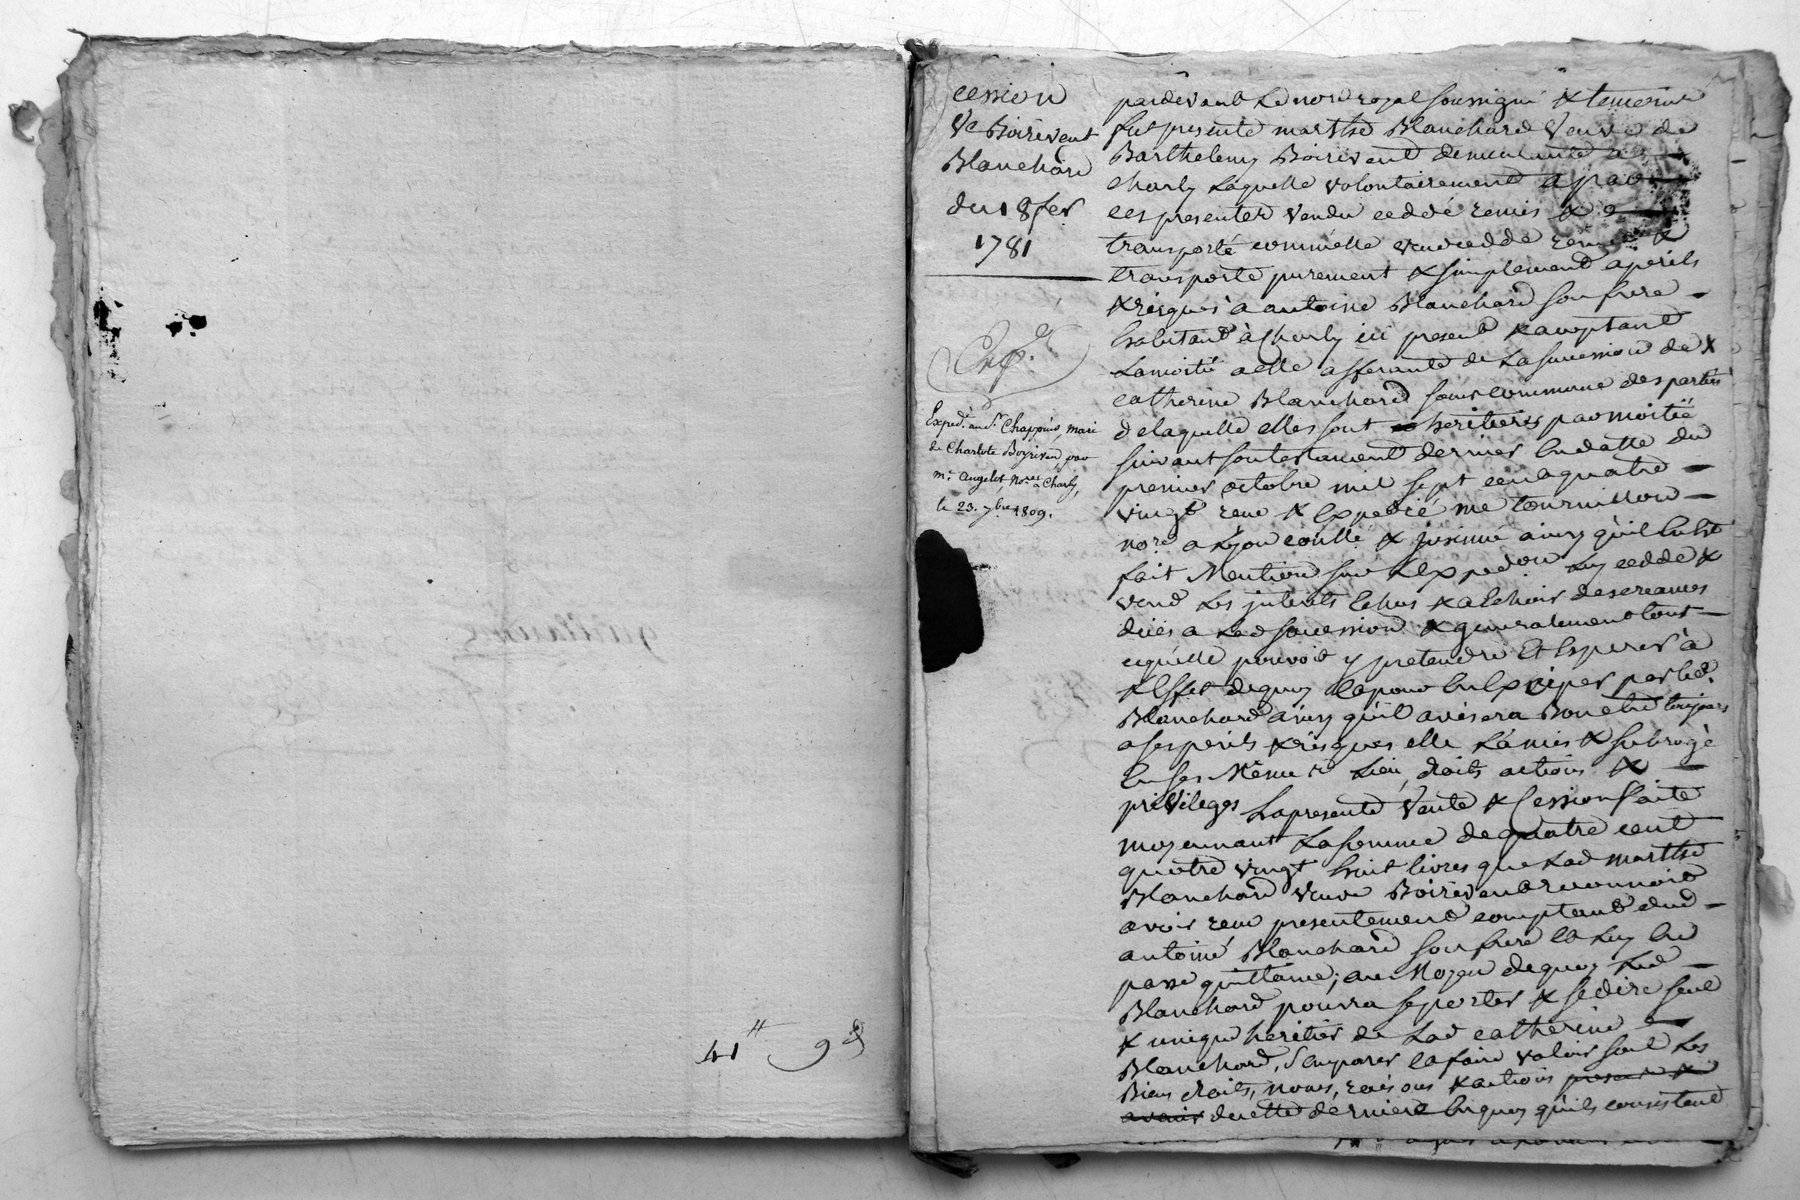 41 ₶ 9 s
cession
Ve Boirivent
Blanchard
du 18 fer
1781
Exp.
Exped. au Sr. Chappuis, mari
de Charlote Boyriven, par
me. Angelot, Nore. a Charly,
le 23. 7bre 1809.
pardevant Le nore royal soussigné & temoins
fut presente marthe Blanchard veuve de
Barthelemy Boirivent demeurante a
charly Laquelle volontairement a par
ces presentes vendu ceddé remis &
transporté comme elle vend cedde remet &
transporte purement & simplement a perils
& risques à antoine Blanchard son frere
habitant à Charly ici present & acceptant
La moitié a elle afferante de La succession de
catherine Blanchard soeur commune des parties
de laquelle elles sont heritieres par moitié
suivant son testament dernier en datte du
premier octobre mil sept cent quatre
vingt recu & Expedié me tournillon
nore a Lyon conllé & insinué ainsy qu'il En Est
fait Mention sur L'Expedon. Luy cedde &
vend Les interets Echus & a Echoir des creances
dües a Lad succession & generalement tout
ce qu'elle pouvoit y pretendre Et Esperer à
L'Effet de quoy Elle pour En Exciper par led.
Blanchard ainsy qu'il avisera Bon etre toujours
a ses perils & risques elle L'a mis & subrogé
En ses Même Lieu, droits actions &
privileges La presente Vente & Cession faite
moyennant La somme de quatre cent
quatre vingt huit livres que Lad marthe
Blanchard veuve Boirivent reconnoit
avoir recu presentement comptant dud
antoine Blanchard son frere Et Luy En
passe quittance; au Moyen de quoy Led
Blanchard pourra se porter & se dire seul
& unique heritier de Lad catherine
Blanchard, s'emparer Et faire valoir seul Les
Biens droits, noms, raisons & actions
de cette derniere En quoy qu'ils consistent